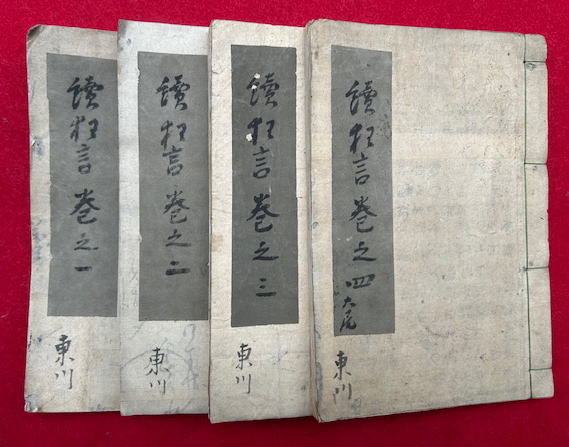 續狂言巻之一
東川
續狂言巻之二
東川
續狂言巻之三
東川
續狂言巻之四大尾
東川